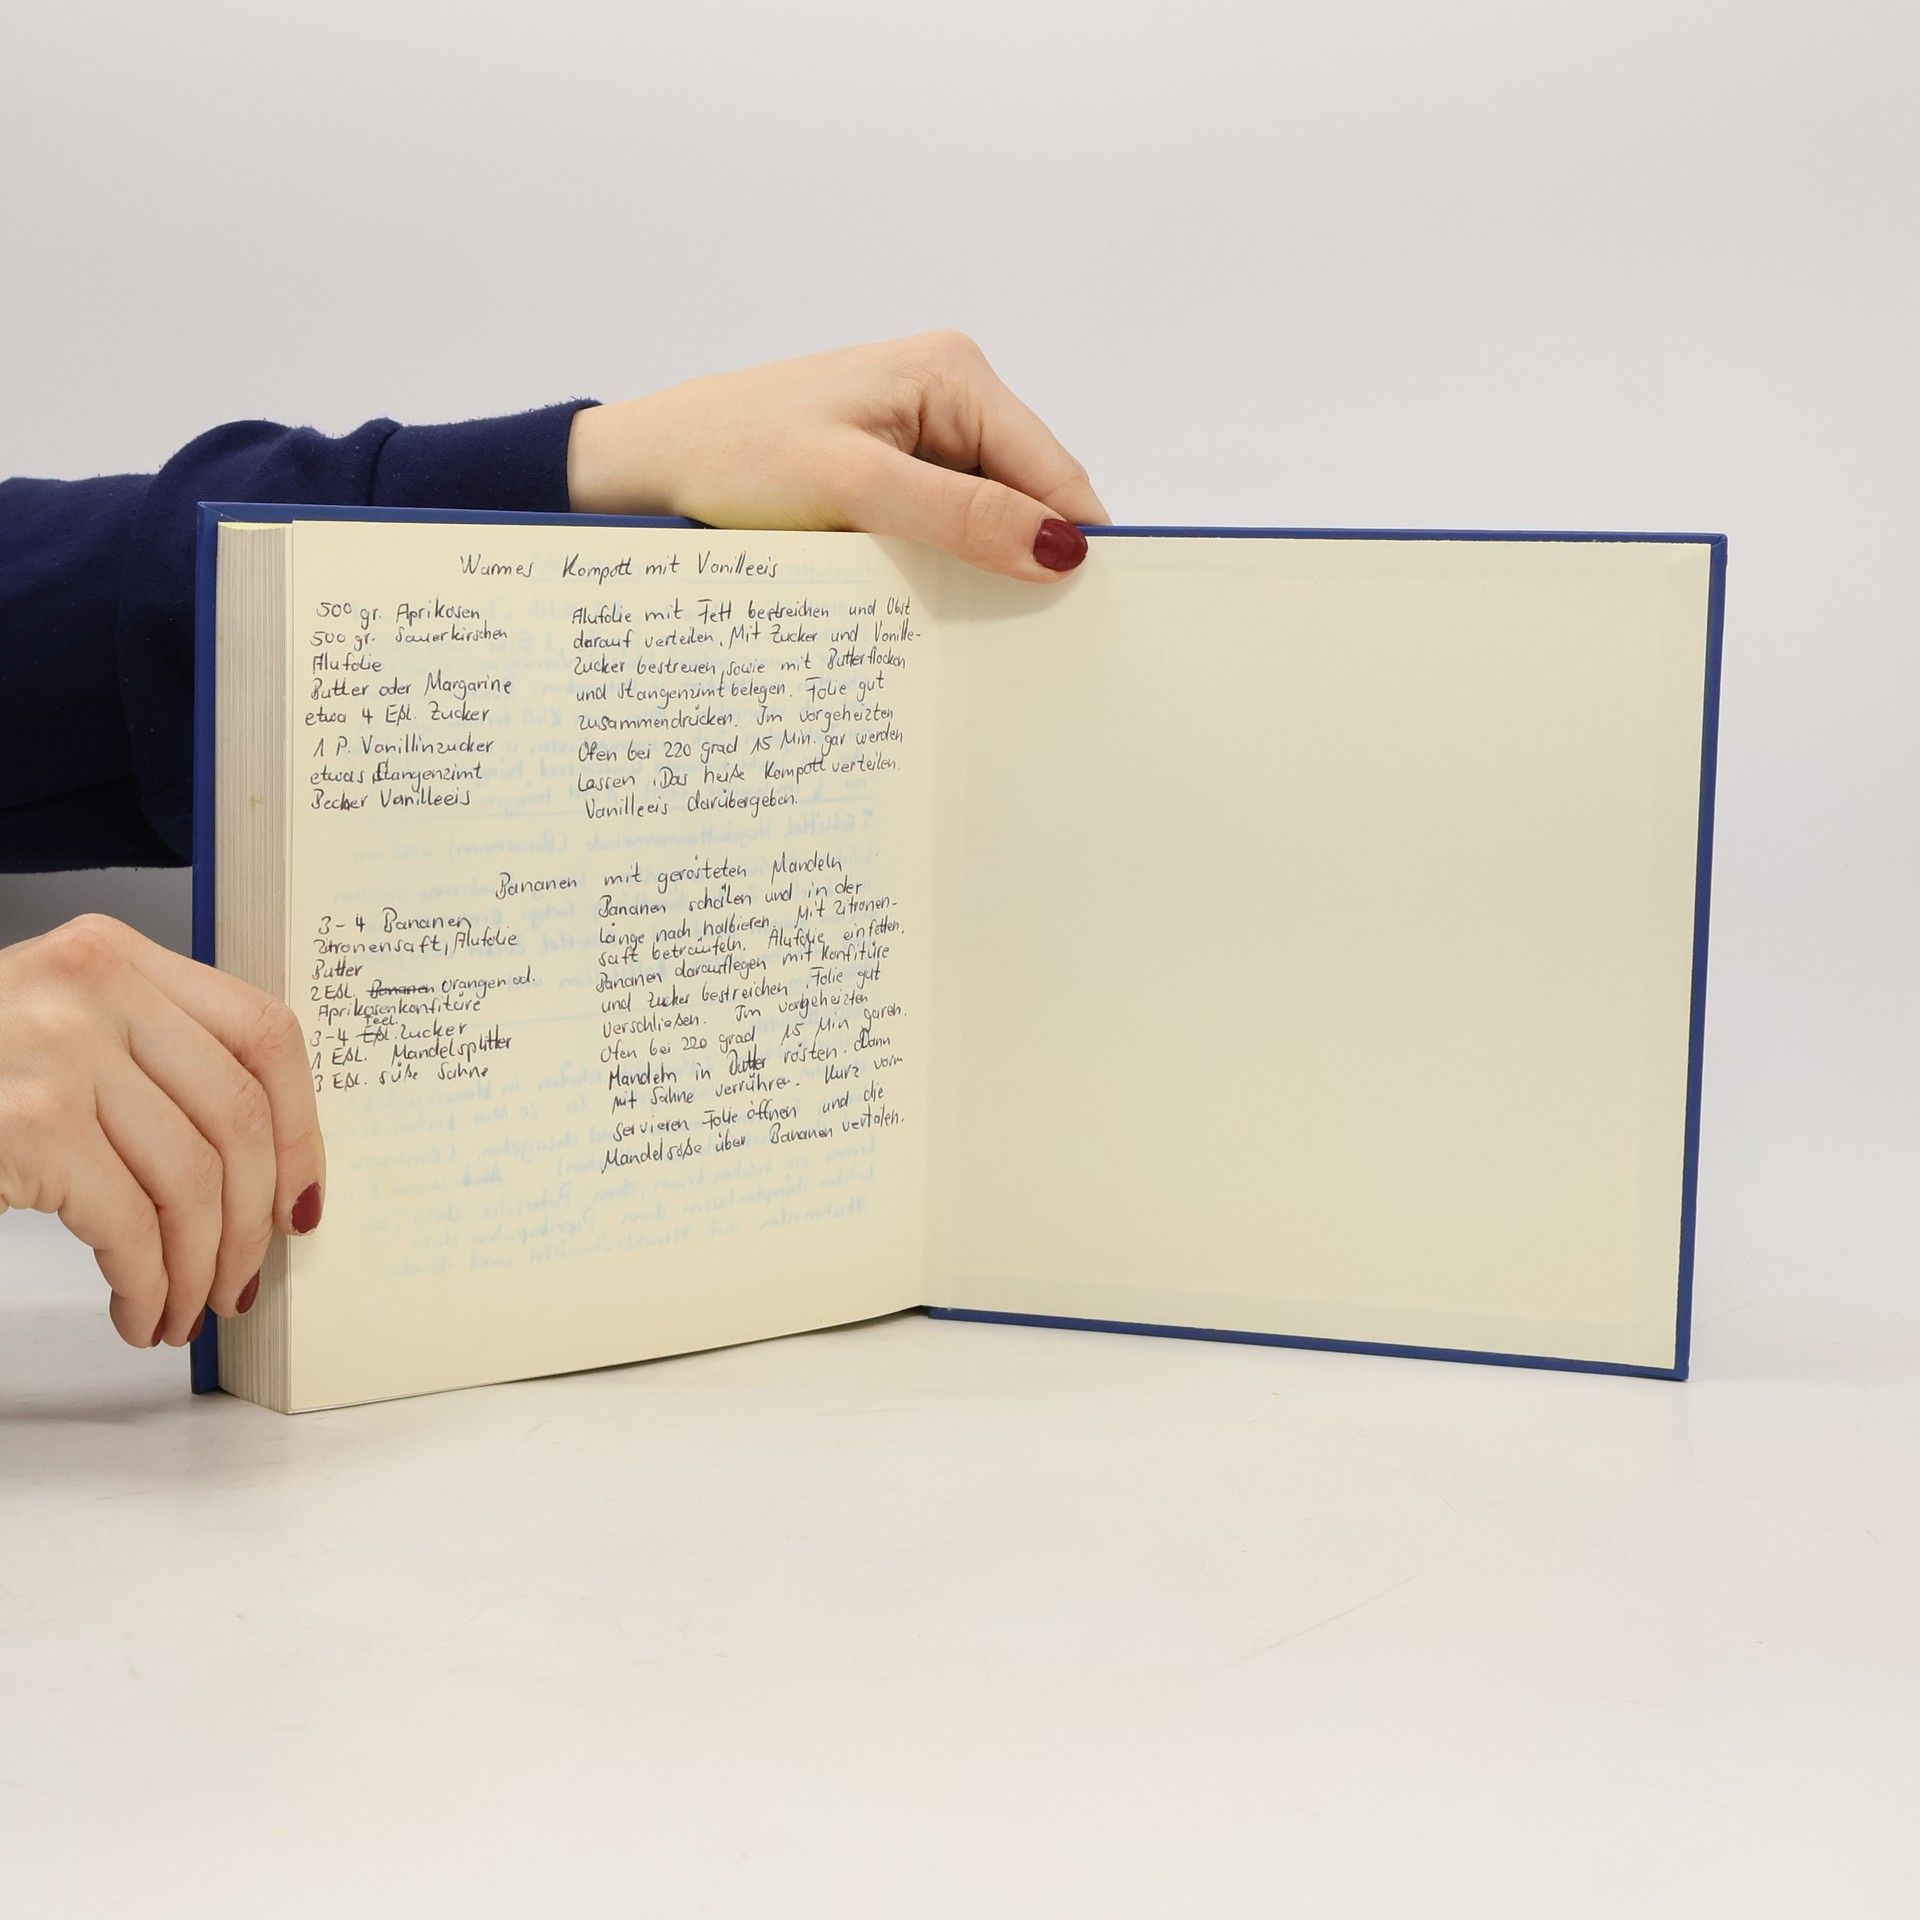 Warmes Kompott mit Vanilleeis
500 gr. Aprikosen
500 gr. Sauerkirschen
Alufolie
Butter oder Margarine
etwa 4 Eßl. Zucker
1 P. Vanillinzucker
etwas Stangenzimt
Becher Vanilleeis
Alufolie mit Fett bestreichen und Obst
darauf verteilen. Mit Zucker und Vanille-
Zucker bestreuen, sowie mit Butterflocken
und Stangenzimt belegen. Folie gut
zusammendrücken. Im vorgeheizten
Ofen bei 220 grad 15 Min. gar werden
lassen. Das heiße Kompott verteilen.
Vanilleeis darübergeben.
Bananen mit gerösteten Mandeln
3-4 Bananen
Zitronensaft, Alufolie
Butter
2 Eßl. Bananen Orangen od.
Aprikosenkonfitüre
Teel.
3-4 Eßl. Zucker
1 Eßl. Mandelsplitter
3 Eßl. süße Sahne
Bananen schälen und in der
länge nach halbieren. Mit Zitronen-
saft beträufeln. Alufolie einfetten.
Bananen darauflegen mit Konfitüre
und Zucker bestreichen. Folie gut
verschließen. Im vorgeheizten
Ofen bei 220 grad 15 Min garen.
Mandeln in Butter rösten. Dann
mit Sahne verrühren. Kurz vorm
servieren Folie öffnen und die
Mandelsoße über Bananen verteilen.